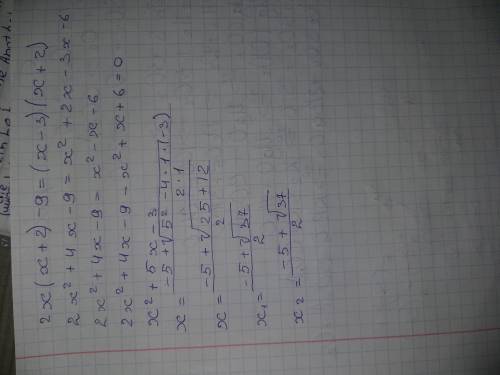 2x(x+2)-9=(x-3)(x+2)
2x²+4x-9=x²+2x-3x-6
2x²+4x-9=x²-x-6
2x²+4x-9-x²+x+6=0
x²+5x-3
x = (-5+√(5²-4·1·(-3)))/(2·1)
x = (-5+√(25+12))/2
x₁ = (-5+√37)/2
x₂ = (-5+√37)/2